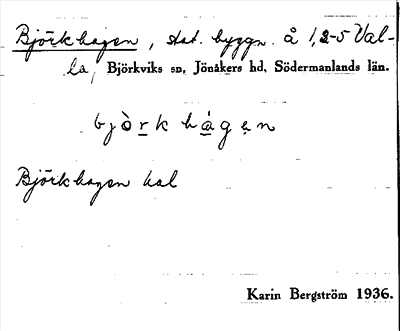 Björkhagen, stat. byggn. å 1,2-5 Val-
la, Björkviks sn, Jönåkers hd, Södermanlands län.
bjòrkhágen
Björkhagen kal
Karin Bergström 1936.